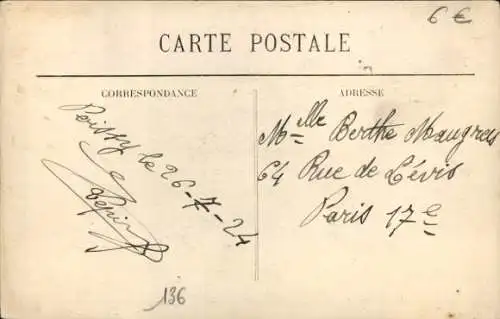 6 €
CARTE POSTALE
CORRESPONDANCE
Poissy le 26-7-24
Pepin
136
ADRESSE
Mlle Berthe Maugras
64 Rue de Lévis
Paris 17e